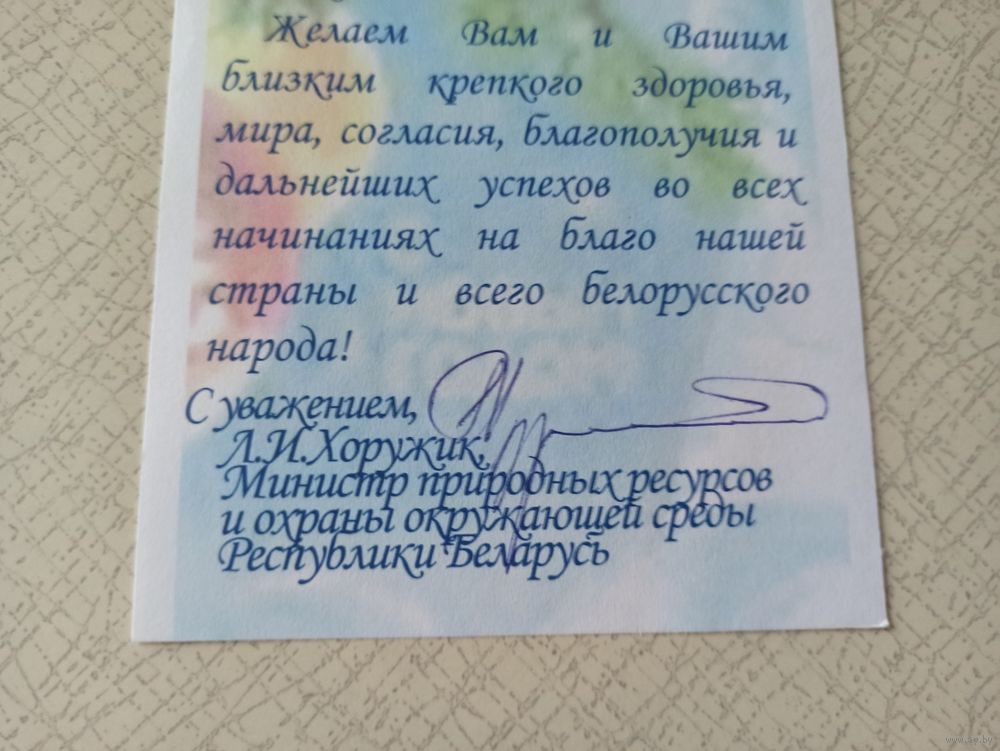 Желаем Вам и Вашим
близким крепкого здоровья,
мира, согласия, благополучия и
дальнейших успехов во всех
начинаниях на благо нашей
страны и всего белорусского
народа!
С уважением,
Л.И.Хоружик,
Министр природных ресурсов
и охраны окружающей среды
Республики Беларусь